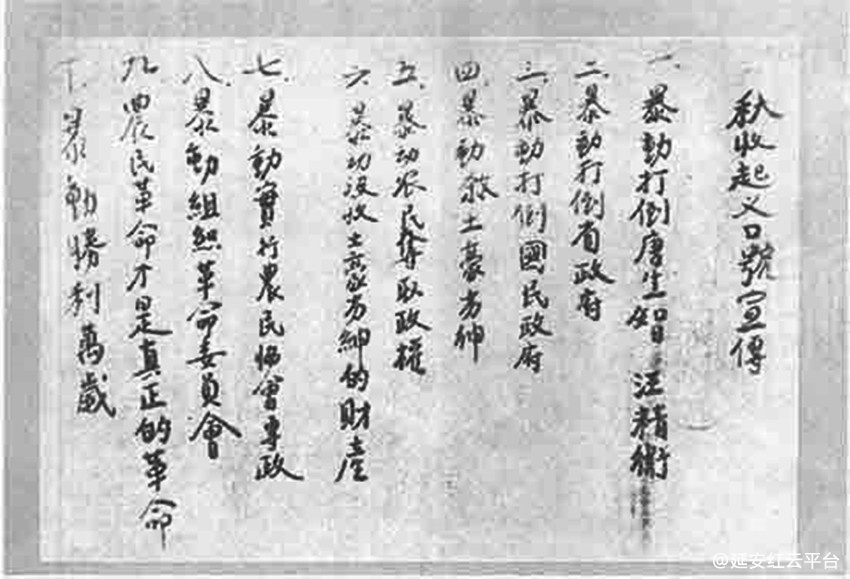 秋收起义口號宣傳
一、暴動打倒唐生智 汪精衛
二、暴動打倒省政府
三、暴動打倒國民政府
四、暴動殺土豪劣紳
五、暴动农民奪取政權
六、暴动没收土豪劣紳的財產
七、暴動實行農民協會專政
八、暴動組織革命委員會
九、農民革命才是真正的革命
十、暴動勝利萬歲
@延安红云平台